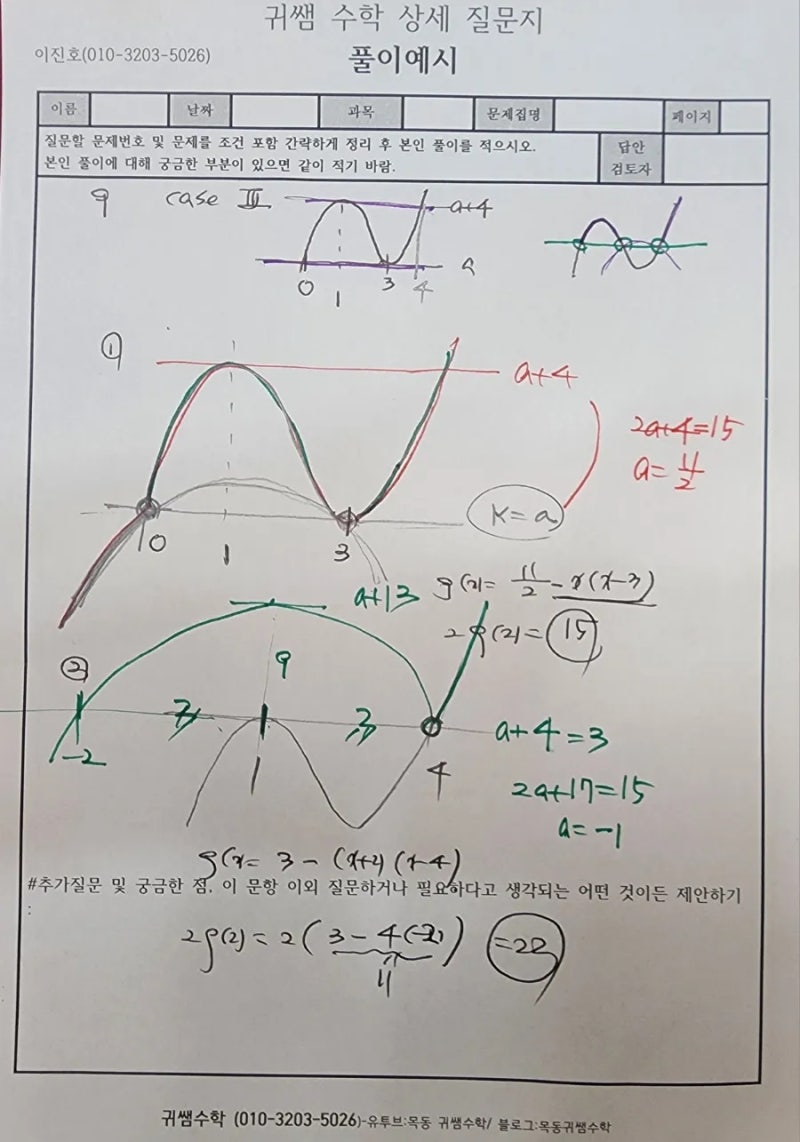 귀쌤 수학 상세 질문지
이진호(010-3203-5026)
풀이예시
이름 날짜 과목 문제집명 페이지
질문할 문제번호 및 문제를 조건 포함 간략하게 정리 후 본인 풀이를 적으시오.
본인 풀이에 대해 궁금한 부분이 있으면 같이 적기 바람.
답안
검토자
9 case Ⅲ
a+4
a
0 1 3 4
①
a+4
2a+4=15
a=11/2
K=a
0 1 3
g(x)= 11/2 - x(x-3)
2g(2)= 15
a+13
②
9
3 3
-2 1 4
a+4=3
2a+17=15
a=-1
g(x= 3-(x+2)(x-4)
#추가질문 및 궁금한 점. 이 문항 이외 질문하거나 필요하다고 생각되는 어떤 것이든 제안하기
:
2g(2)=2(3-4(-2)) =22
11
귀쌤수학 (010-3203-5026)-유투브:목동 귀쌤수학/ 블로그:목동귀쌤수학